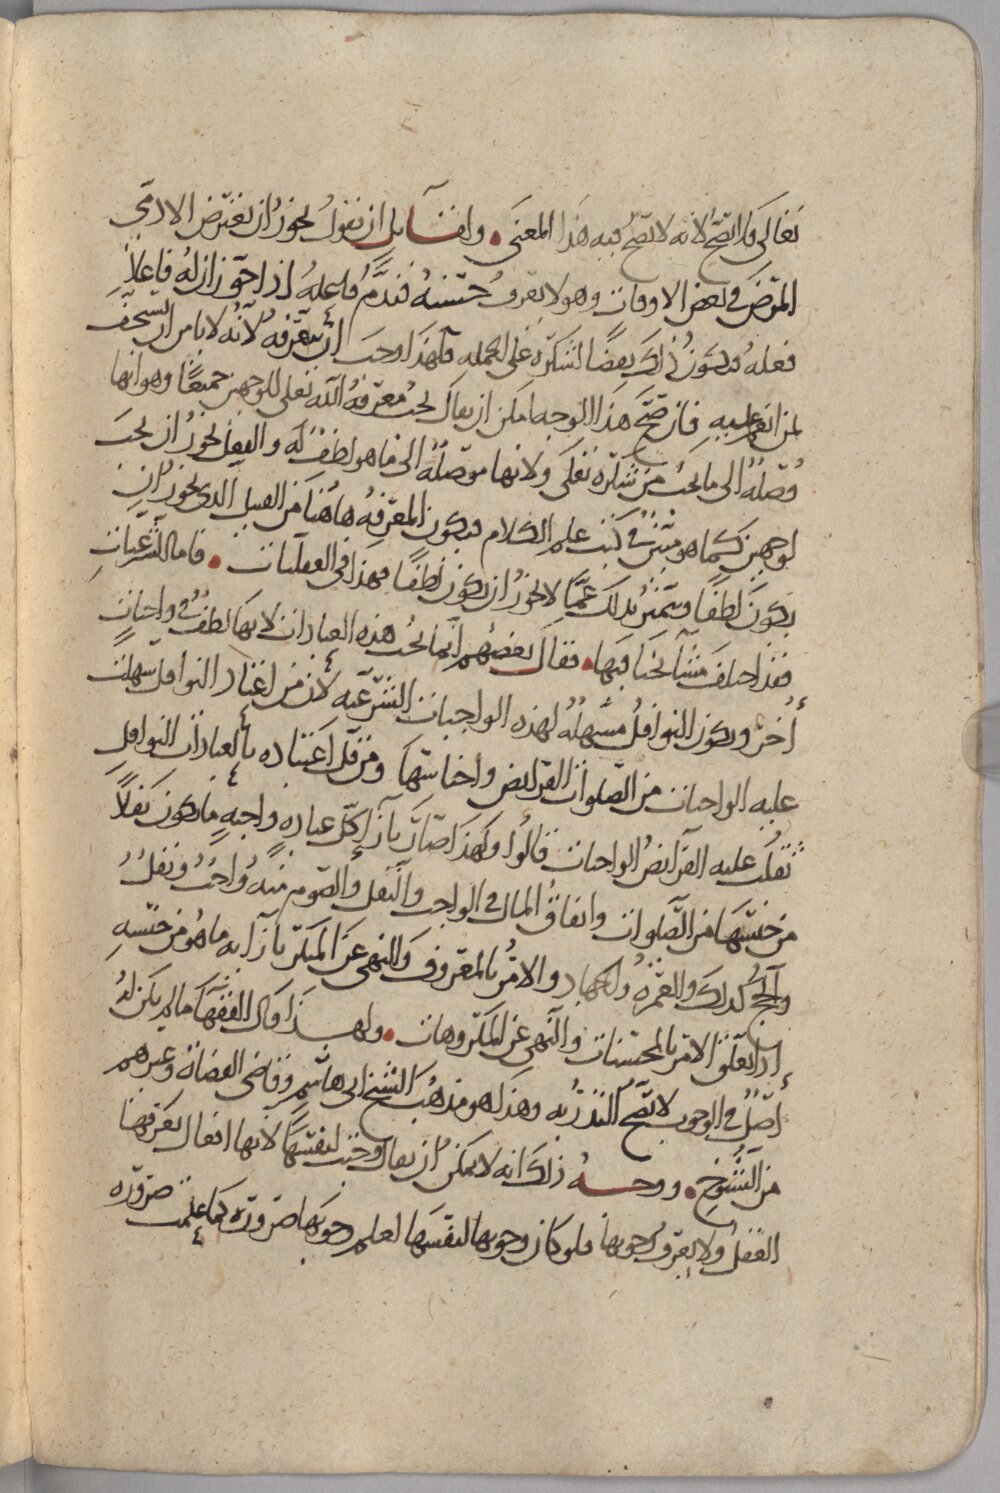 تعالى فلا يصح لانه لا يصح فيه هذا المعنى . ولقائل ان يقول يجوز ان يعترض الادمي
المرض في بعض الاوقات وهو لا يعرف حسنه فيذم فاعله اذا جوز ان له فاعلاً
فعله فيكون ذلك بعضا لشكره على الجمله فلهذا وجب ان يعرفه لانه لا يامن ان يستخف
بمن انعم عليه فان صح هذا الوجه امكن ان يقال يجب معرفة الله تعالى للوجهين جميعاً وهو انها
وصلة الى ما يجب من شكره تعالى ولانها موصلة الى ما هو لطف له والفعل يجوز ان يجب
لوجهين كما هو مبين في كتب علم الكلام فيكون المعرفة هاهنا من القبيل الذي يجوز ان
يكون لطفا ويتميز بذلك عما لا يجوز ان يكون لطفا فهذا في العقليات . فاما الشرعيات
فقد اختلف مشايخنا فيها . فقال بعضهم انما يجب هذه العبادات لانها لطف في واجبات
أخر ويكون النوافل مسهلة لهذه الواجبات الشرعيه لان من اعتاد النوافل سهلت
عليه الواجبات من الصلوات الفرائض واجناسها ومن قل اعتياده بالعبادات النوافل
ثقلت عليه الفرائض الواجبات قالوا ولهذا صار بازآء كل عبادة واجبة ما يكون نفلاً
من جنسها من الصلوات وانفاق المال في الواجب والنفل والصوم منه واجب ونفل
والحج كذلك والعمرة والجهاد والامر بالمعروف والنهي عن المنكر بازآئه ما هو من جنسه
إذا تعلق الامر بالمحسنات والنهي عن المكروهات . ولهذا قال الفقهآ ما لم يكن له
أصل في الوجوب لا يصح النذر به وهذا هو مذهب الشيخ ابي هاشم وقاضي القضاة وغيرهم
من الشيوخ . ووجه ذلك انه لا يمكن ان يقال وجبت لنفسها لانها افعال يعرفها
العقل ولا يعرف وجوبها فلو كان وجوبها لنفسها لعلم وجوبها ضرورة كما علمت ضرورة